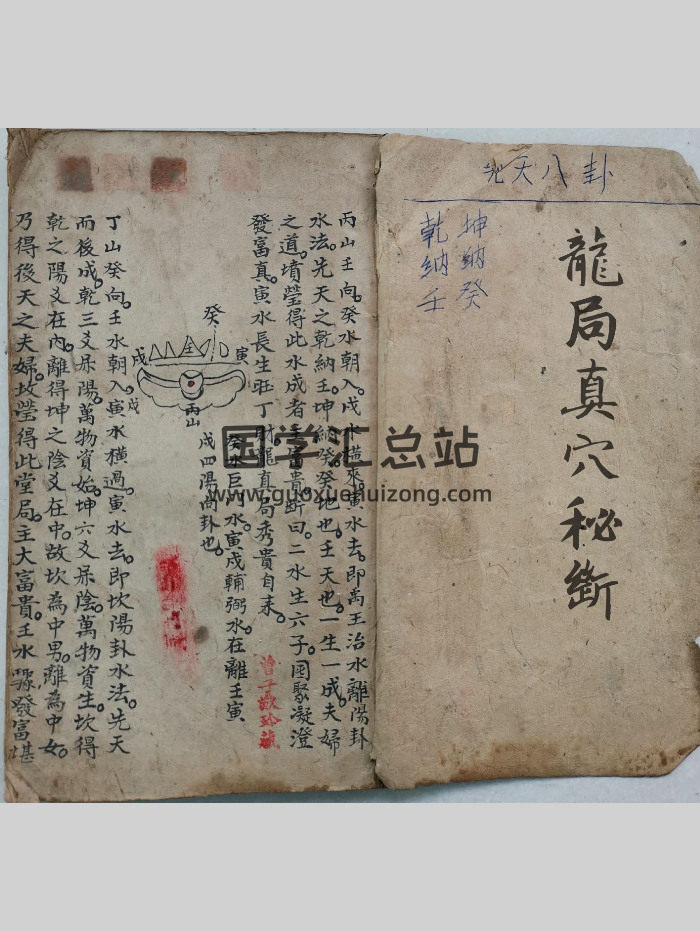 先天八卦
坤納癸
乾納壬
龍局真穴秘斷
丙山壬向。癸水朝入。戊水橫來。寅水去。即禹王治水。離陽卦
水法。先天之乾納壬。坤納癸。癸地也。壬天也。一生一成。夫婦
之道。墳瑩得此水成者。主富貴。斷曰。二水生六子。團聚凝澄
發富真。寅水長生旺丁財。龍真局秀貴自来。
曾子敬珍藏
癸
寅
戌
戌
丙山
癸水巨门水。寅戌輔弼水。在離壬寅
戌四陽向卦也。
丁山癸向。壬水朝入。寅水橫過。寅水去。即坎陽卦水法。先天
而後成。乾三爻屬陽。萬物資始。坤六爻屬陰。萬物資生。坎得
乾之陽爻在內。離得坤之陰爻在中。故坎為中男。離為中女。
乃得後天之夫婦。坟瑩得此堂局。主大富貴。壬水驟發富甚
国学汇总站
www.guoxuehuizong.com